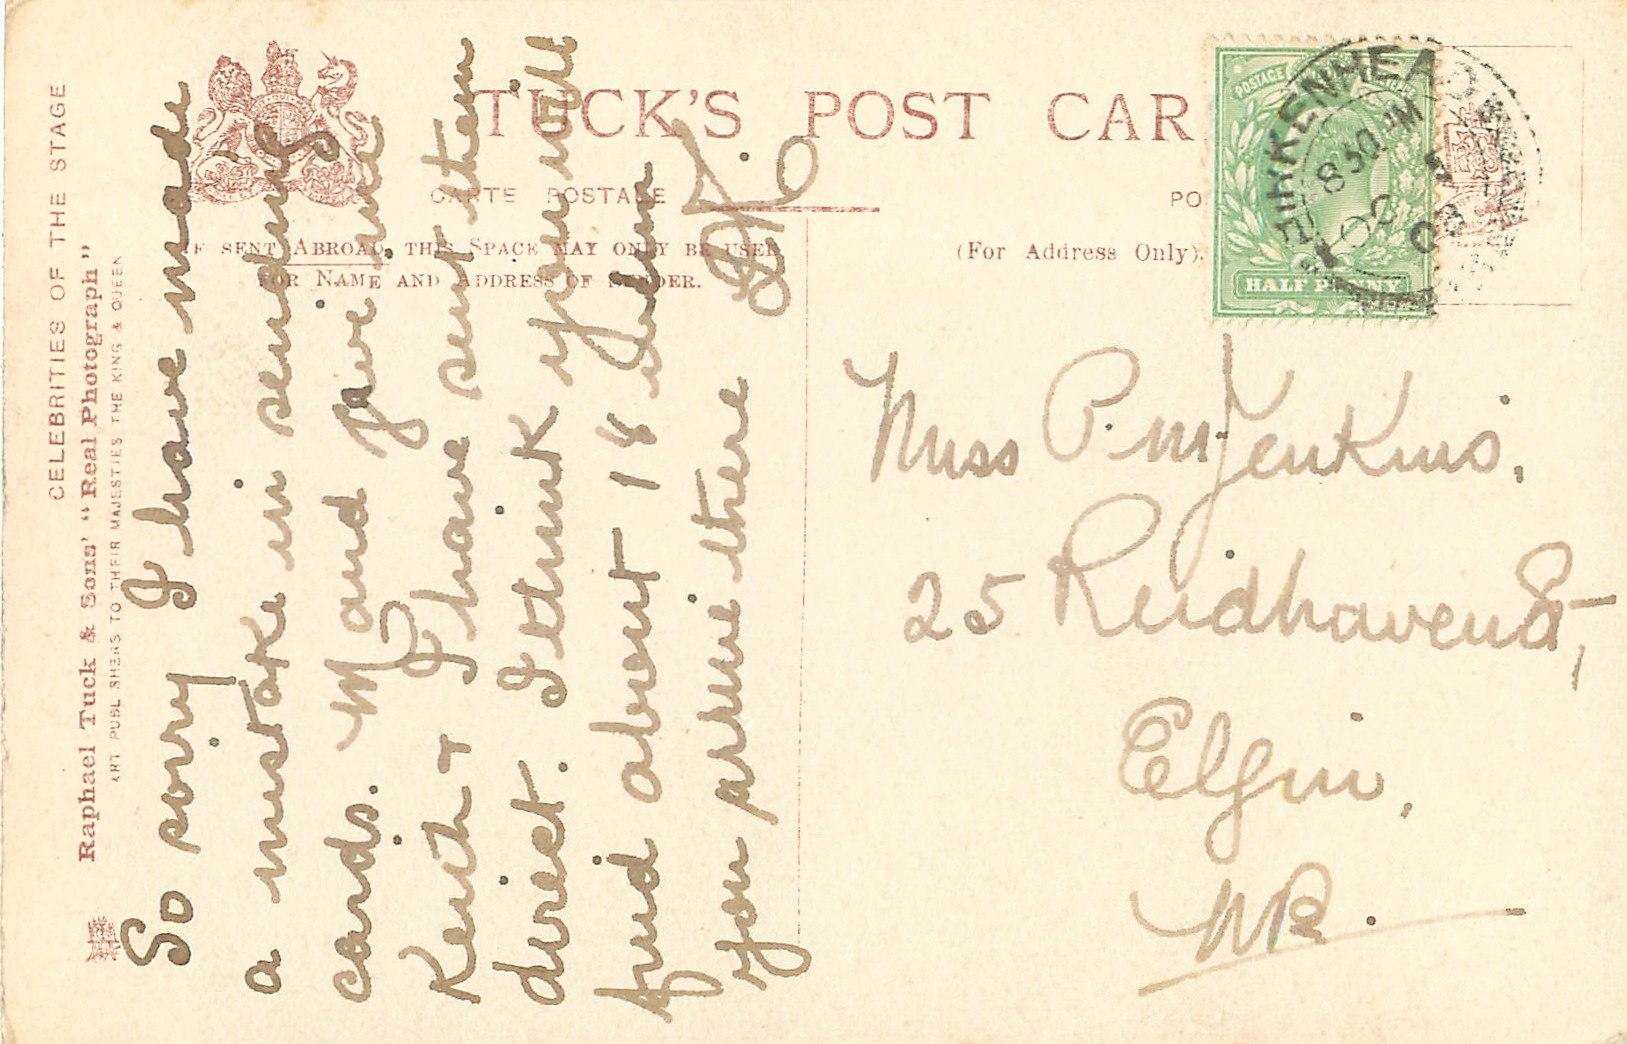 CELEBRITIES OF THE STAGE
Raphael Tuck & Sons' "Real Photograph"
ART PUBLISHERS TO THEIR MAJESTIES THE KING & QUEEN
TUCK'S POST CAR
CARTE POSTALE
PO
IF SENT ABROAD, THIS SPACE MAY ONLY BE USED
FOR NAME AND ADDRESS OF SENDER.
(For Address Only).
POSTAGE
HALF PENNY
BIRKENHEAD
8 30 PM
OC
03
So sorry I have made
a mistake in sending
cards. M and gave me
Keith & I have sent them
direct. I think you will
find about 18 when
you arrive there
Miss P. M. Jenkins.
25 Reidhaven St,
Elgin,
NB.